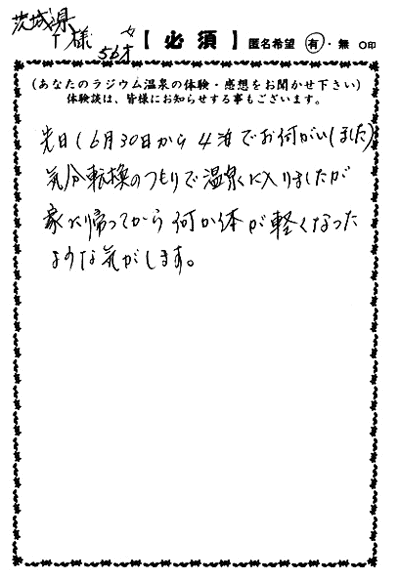 茨城県
T様 56才 女 【必須】 匿名希望 有・無 ○印
(あなたのラジウム温泉の体験・感想をお聞かせ下さい)
体験談は、皆様にお知らせする事もございます。
先日(6月30日から4泊でお伺がいしました)
気分転換のつもりで温泉に入りましたが
家に帰ってから何か体が軽くなった
ような気がします。